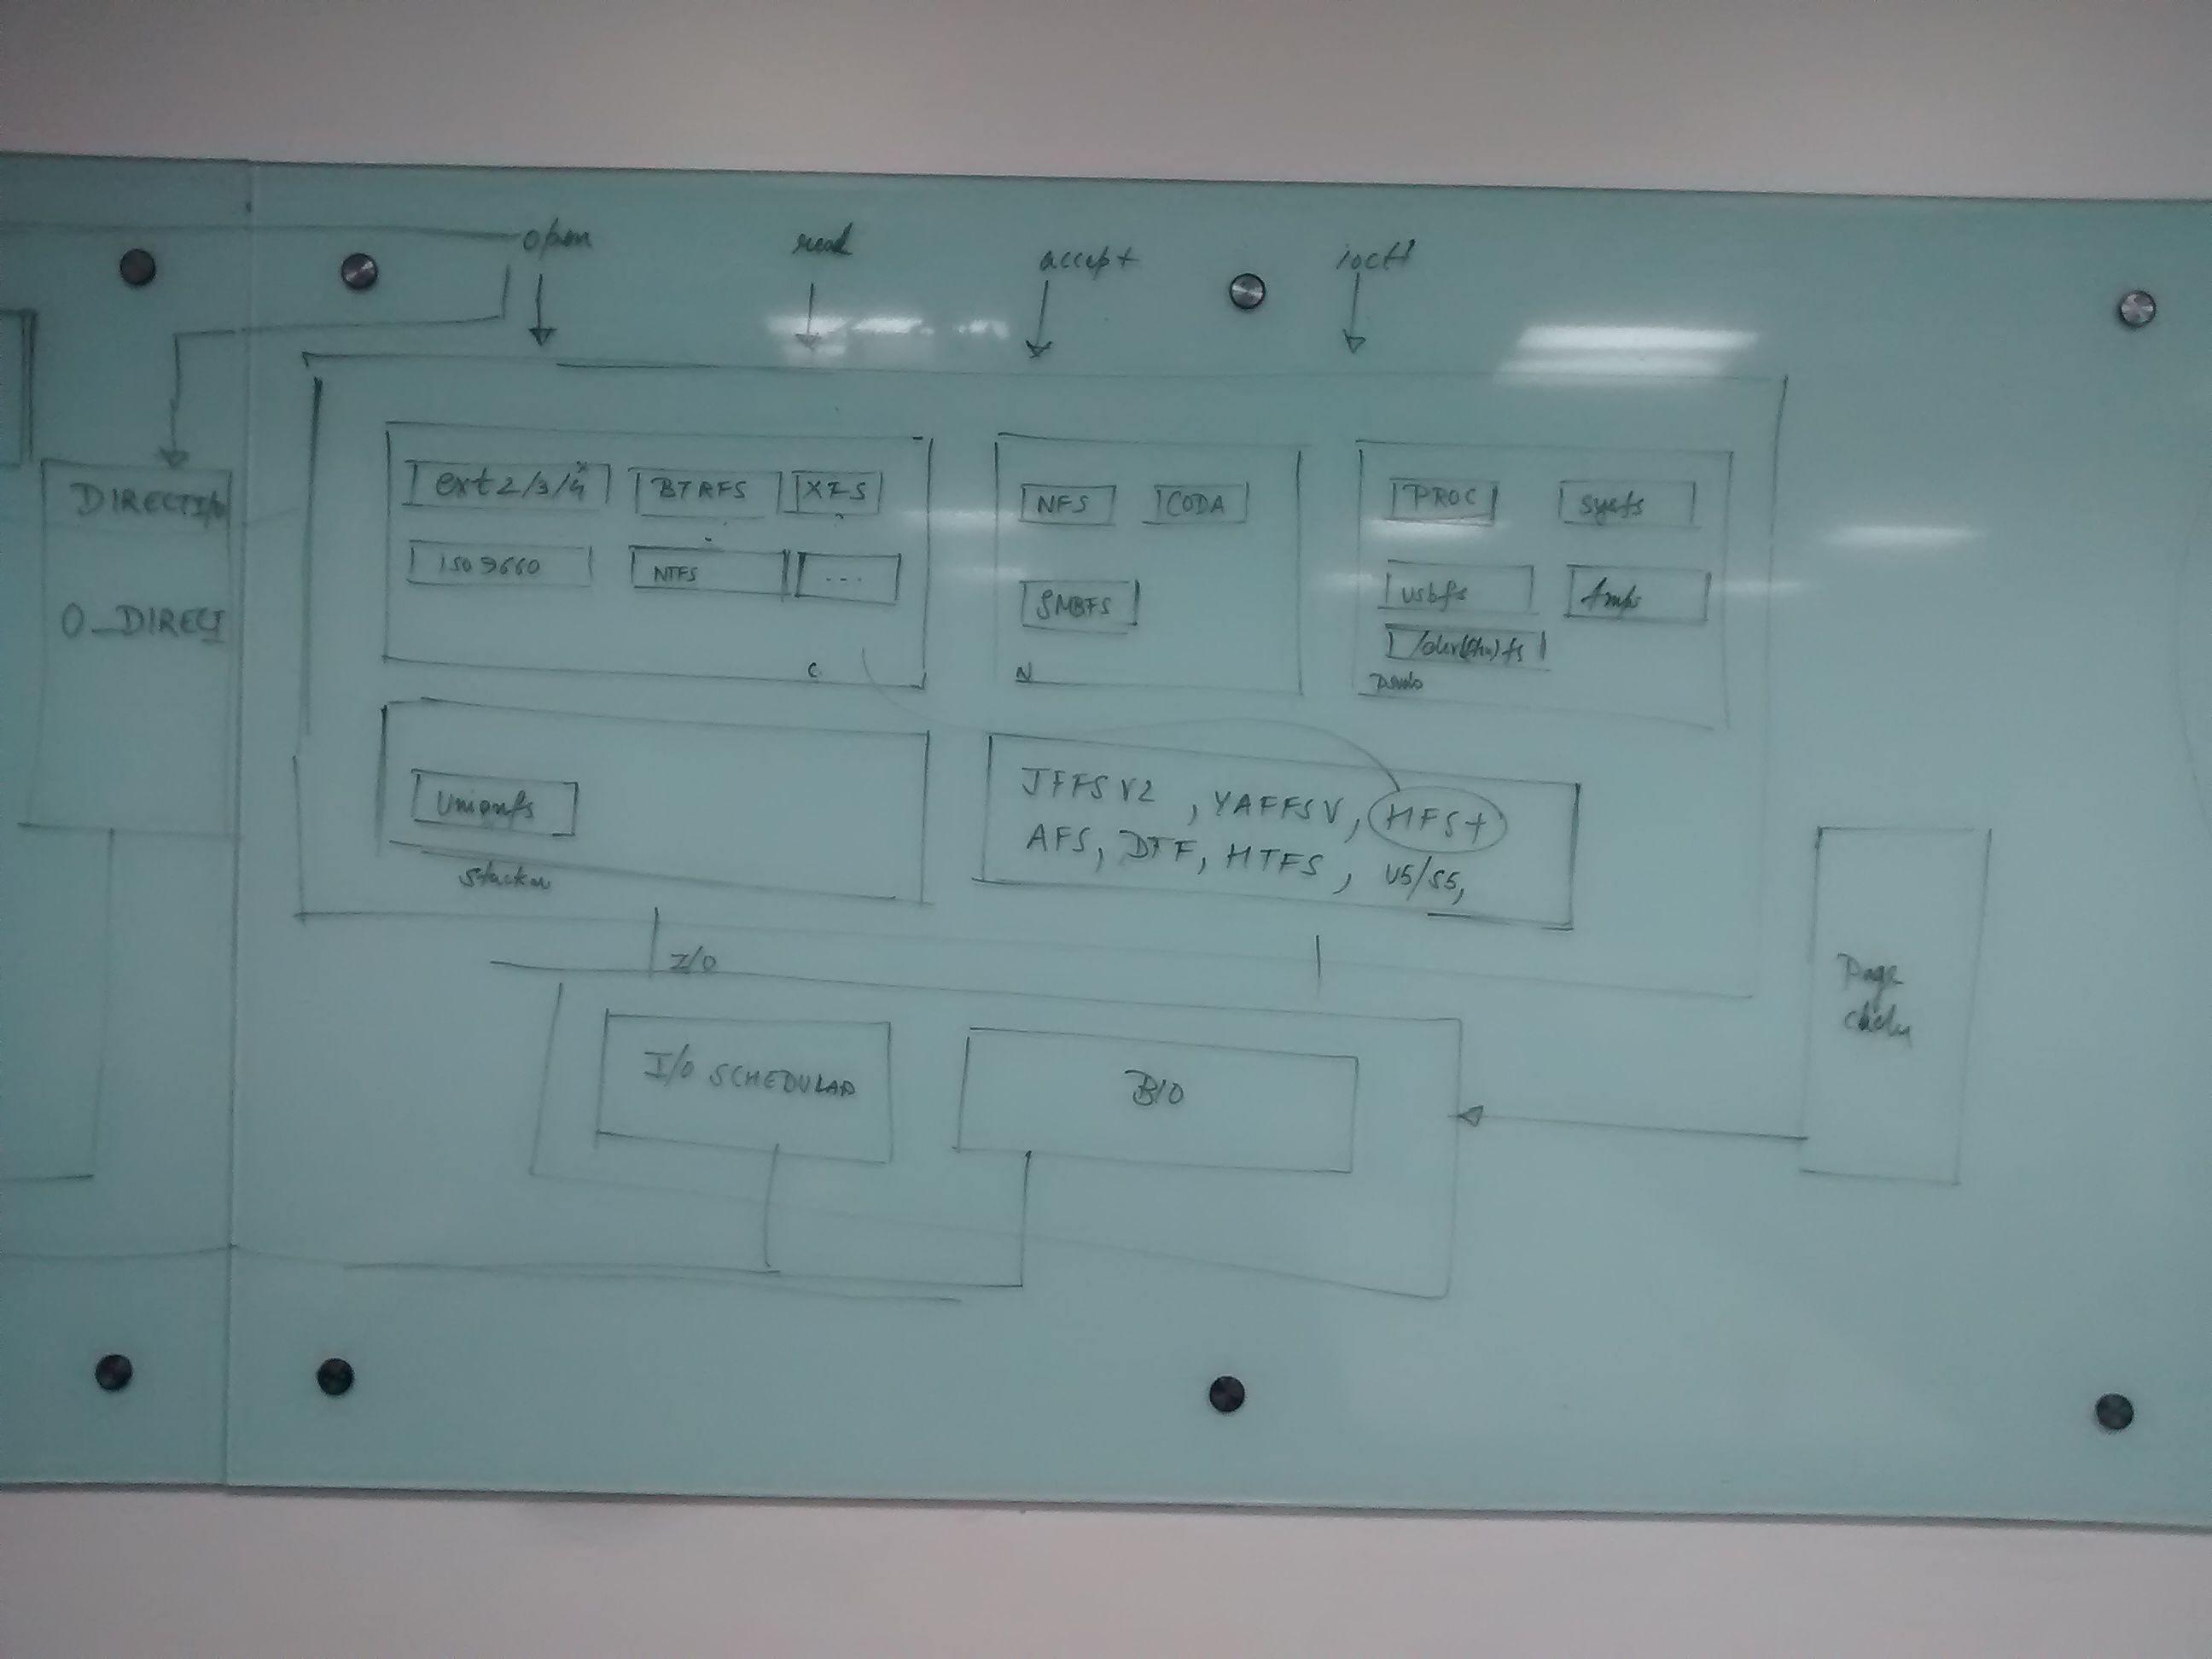 open read accept ioctl
DIRECT I/O
O_DIRECT
ext2/3/4 BTRFS XFS
ISO 9660 NTFS ...
C
NFS CODA
SMBFS
N
PROC sysfs
usbfs
Unionfs
JFFS V2, YAFFSV, HFS+
AFS, DTF, HTFS, U5/S5,
I/O
I/O SCHEDULAR BIO
Page